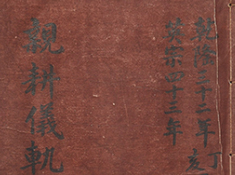 乾隆三十二年丁亥
英宗四十三年
親耕儀軌